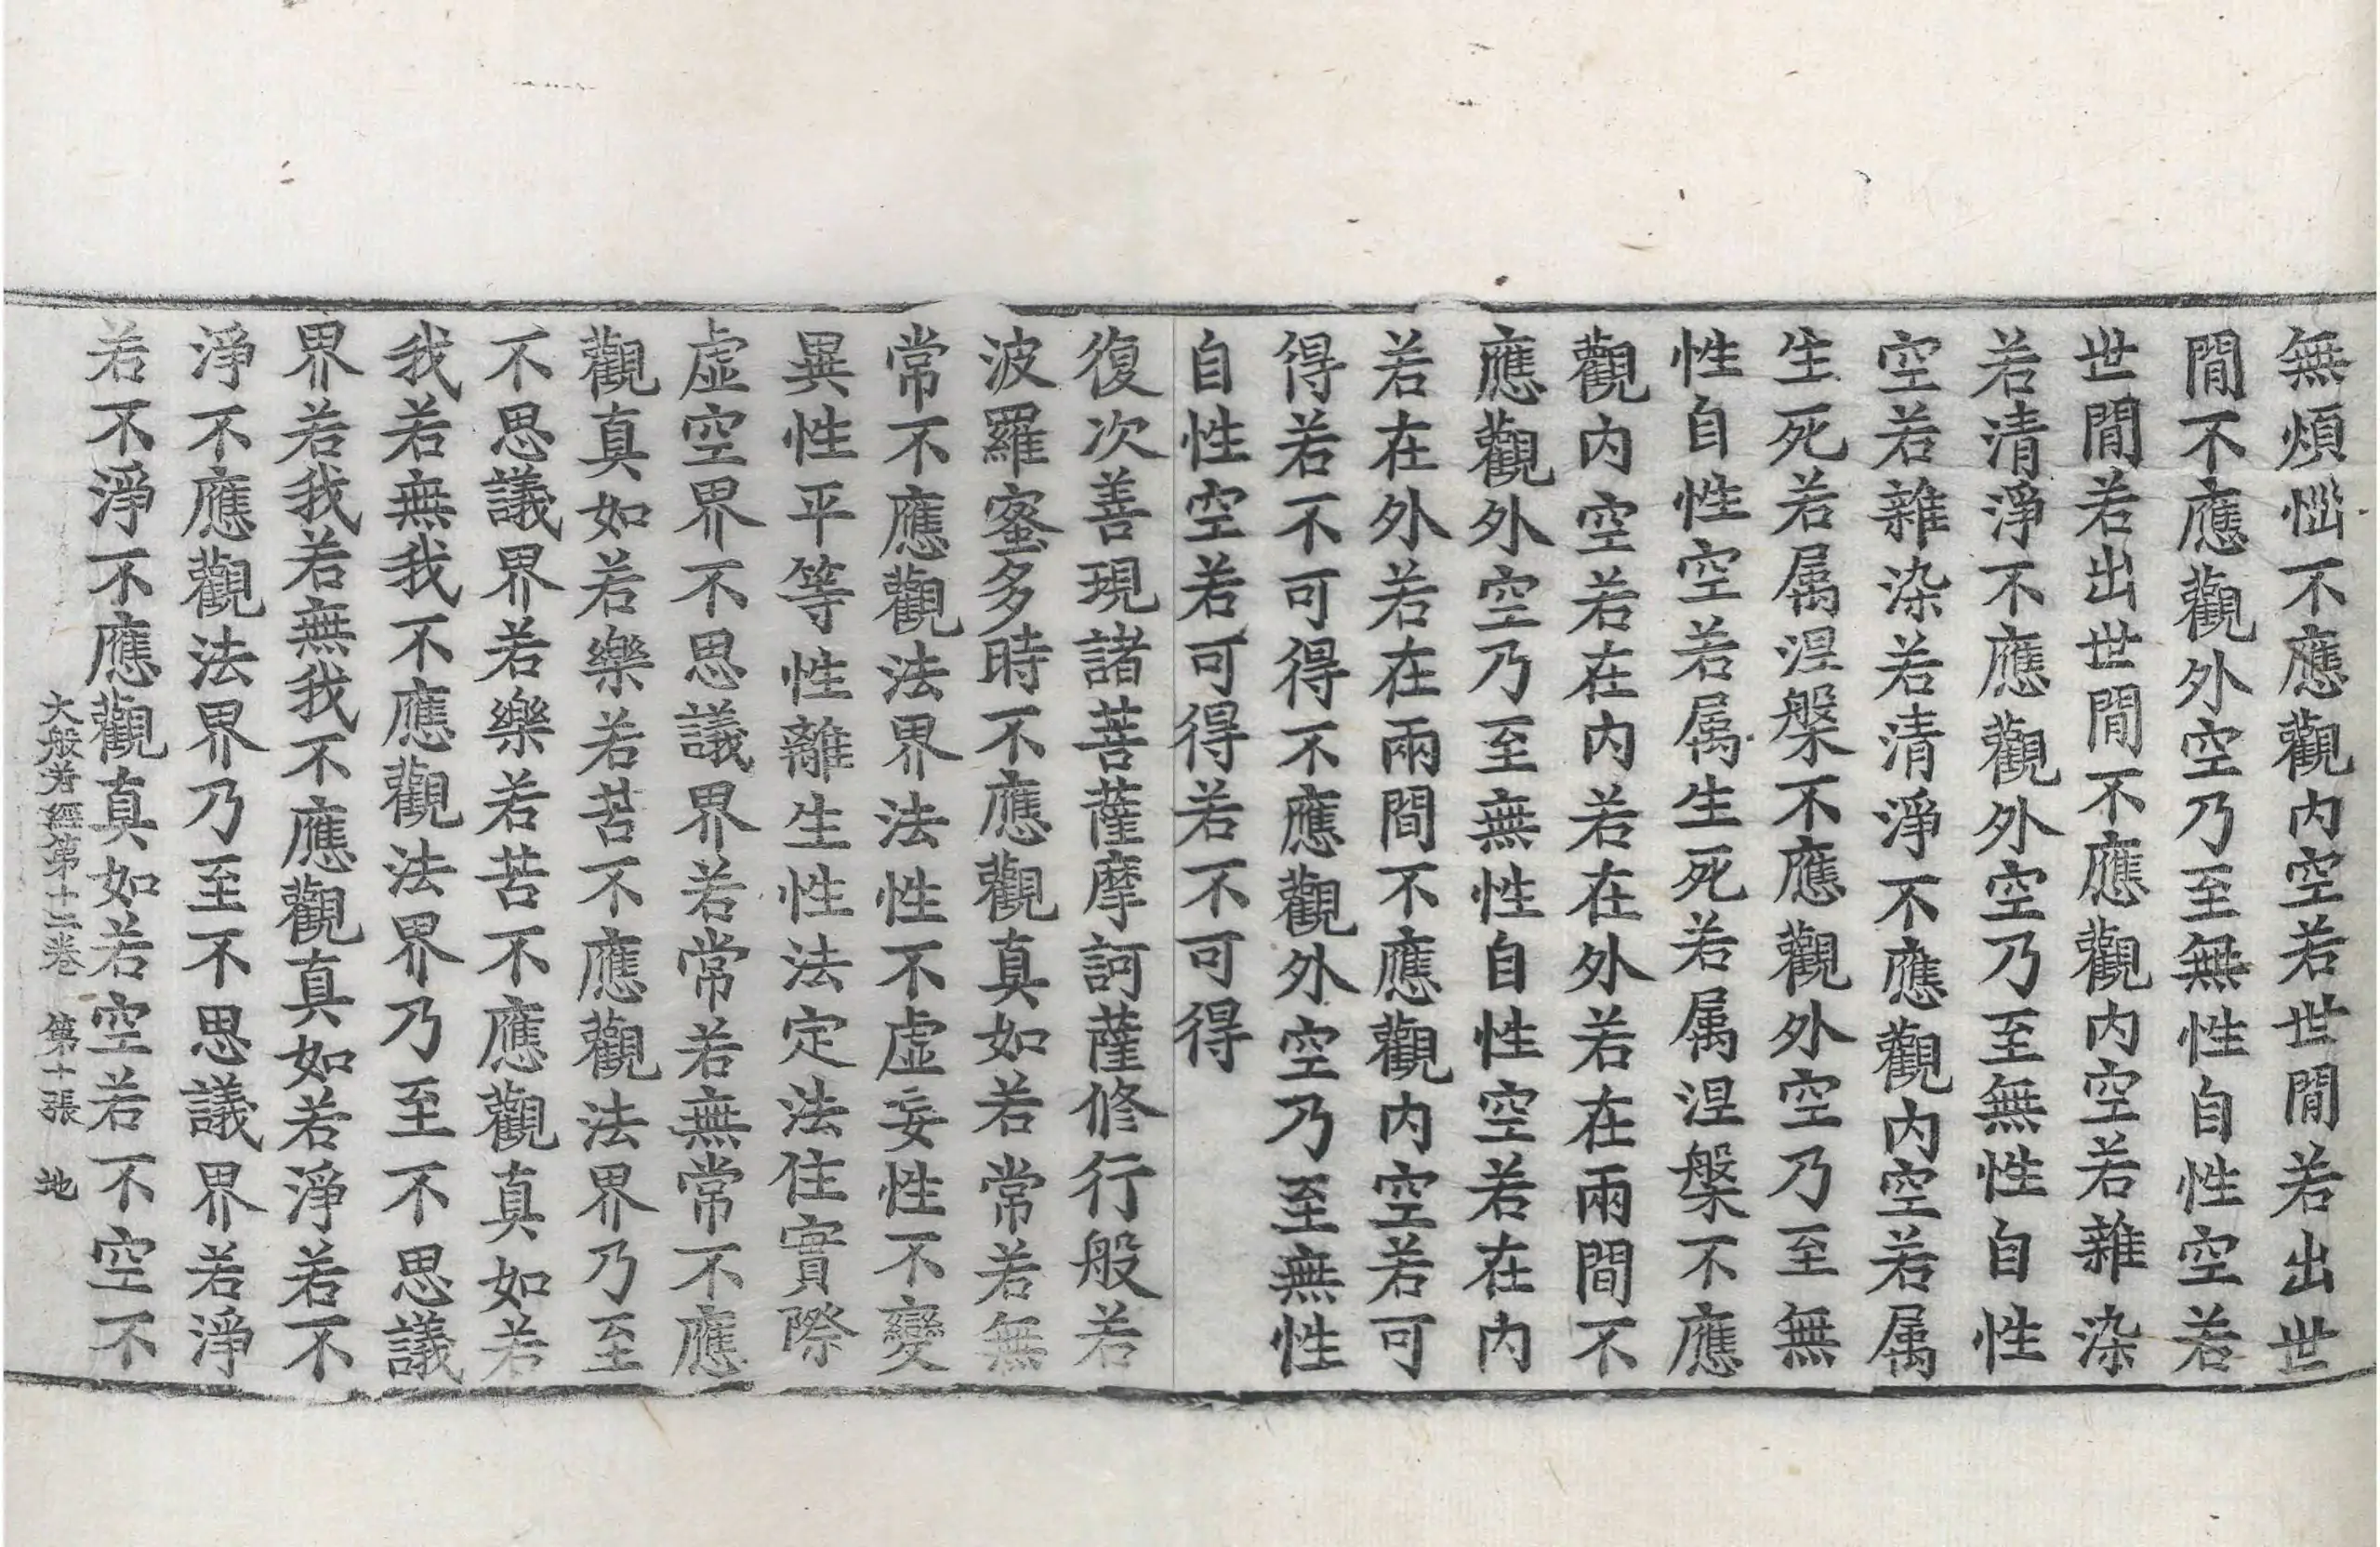 無煩惱不應觀内空若世閒若出世
閒不應觀外空乃至無性自性空若
世閒若出世閒不應觀内空若雜染
若清淨不應觀外空乃至無性自性
空若雜染若清淨不應觀内空若属
生死若属涅槃不應觀外空乃至無
性自性空若属生死若属涅槃不應
觀内空若在内若在外若在兩間不
應觀外空乃至無性自性空若在内
若在外若在兩間不應觀内空若可
得若不可得不應觀外空乃至無性
自性空若可得若不可得
復次善現諸菩薩摩訶薩修行般若
波羅蜜多時不應觀真如若常若無
常不應觀法界法性不虛妄性不變
異性平等性離生性法定法住實際
虛空界不思議界若常若無常不應
觀真如若樂若苦不應觀法界乃至
不思議界若樂若苦不應觀真如若
我若無我不應觀法界乃至不思議
界若我若無我不應觀真如若淨若不
淨不應觀法界乃至不思議界若淨
若不淨不應觀真如若空若不空不
大般若經第十二卷 第十張 地